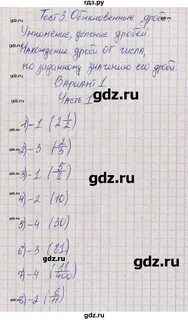 гдз.ру
Тест 3 Обыкновенные дроби.
Умножение, деление дробей.
Нахождение дроби от числа,
по заданному значению его дроби.
Вариант 1
Часть 1
1)-1 (2 1/2)
2)-3 (2/3)
3)-1
4)-2 (10)
5)-4 (30)
6)-3 (81)
7)-4
8)-2
gdz.ru